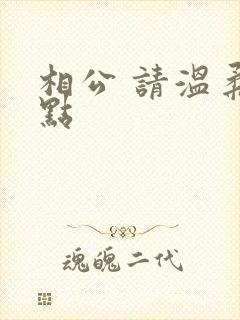 相公 請溫柔
點
魂魄二代